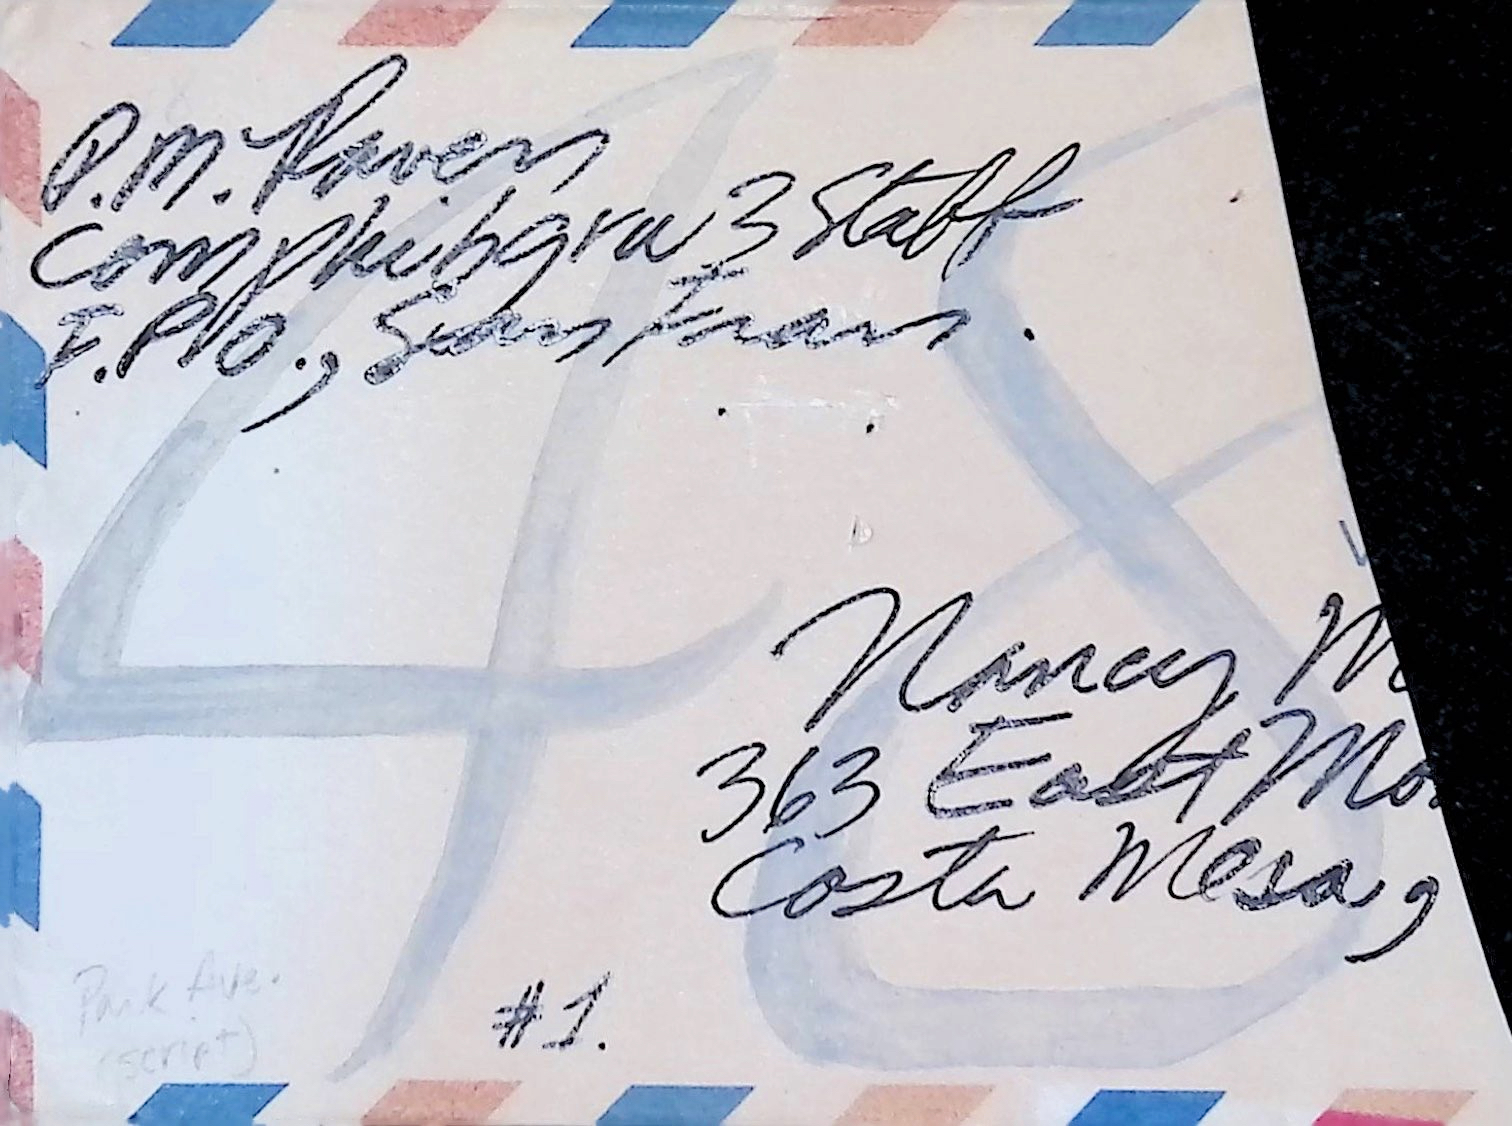 P.M. Raven
Comphibgru 3 Staff
F.P.O., San Fran.
48
Nancy M
363 East Mo
Costa Mesa,
#1.
Park Ave.
(script)